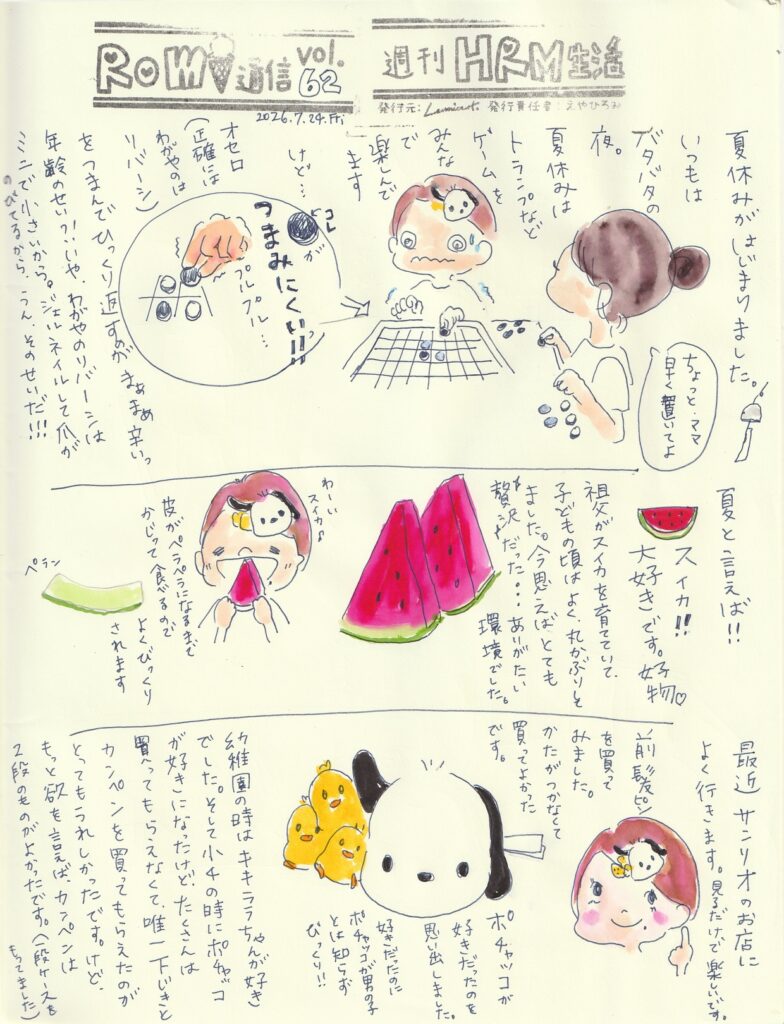 RoMi通信 vol.62
週刊 HRM生活
発行元: Lamicat. 発行責任者:えやひろみ
2026.7.24.Fri
夏休みがはじまりました。
いつもは
バタバタの
夜。
夏休みは
トランプなど
ゲームを
みんな
で
楽しんで
ます
けど…
オセロ
(正確には
わがやは
リバーシ)
をつまんでひっくり返すのが まぁまぁ辛いっ
年齢のせい?!いや、わがやのリバーシは
ミニで小さいから。ジェルネイルして爪が
のびてるから、うん、そのせいだ!!!
コレ
が
つまみにくい!!っ
プルプル…
ちょっと・ママ
早く置いてよ
夏と言えば!!
スイカ!!
大好きです。好物♡
祖父がスイカを育てていて、
子どもの頃はよく、丸かぶりそ
ました。今思えば、とても
贅沢だった…ありがたい
環境でした。
わーい
スイカ♪
皮がペラペラになるまで
かじって食べるので
よくびっくり
されます
ペラン
最近 サンリオのお店に
よく行きます。見るだけで楽しいです。
前髪ピン
を買って
みました。
かたがつかなくて
買ってよかった
です。
ポチャッコが
好きだったのを
思い出しました。
好きだったのに
ポチャッコが男の子
とは知らず
びっくり!!
幼稚園の時はキキララちゃんが好き
でした。そして小4の時にポチャッコ
が好きになったけど、たくさんは
買ってもらえなくて、唯一下じきと
カンペンを買ってもらえたのが
とってもうれしかったです。けど、
もっと欲を言えば、カンペンは
2段のものがよかったです。(一段ケースを
もってました)